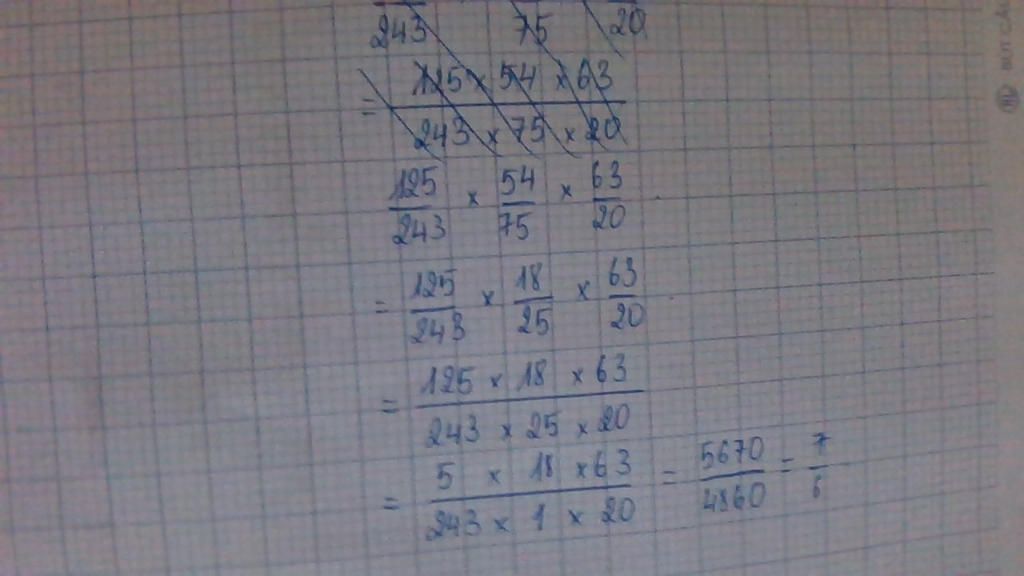 243 75 20
= 125 × 54 × 63
243 × 75 × 20
125/243 × 54/75 × 63/20
= 125/243 × 18/25 × 63/20
= 125 × 18 × 63
243 × 25 × 20
= 5 × 18 × 63 / 243 × 1 × 20 = 5670/4860 = 7/6